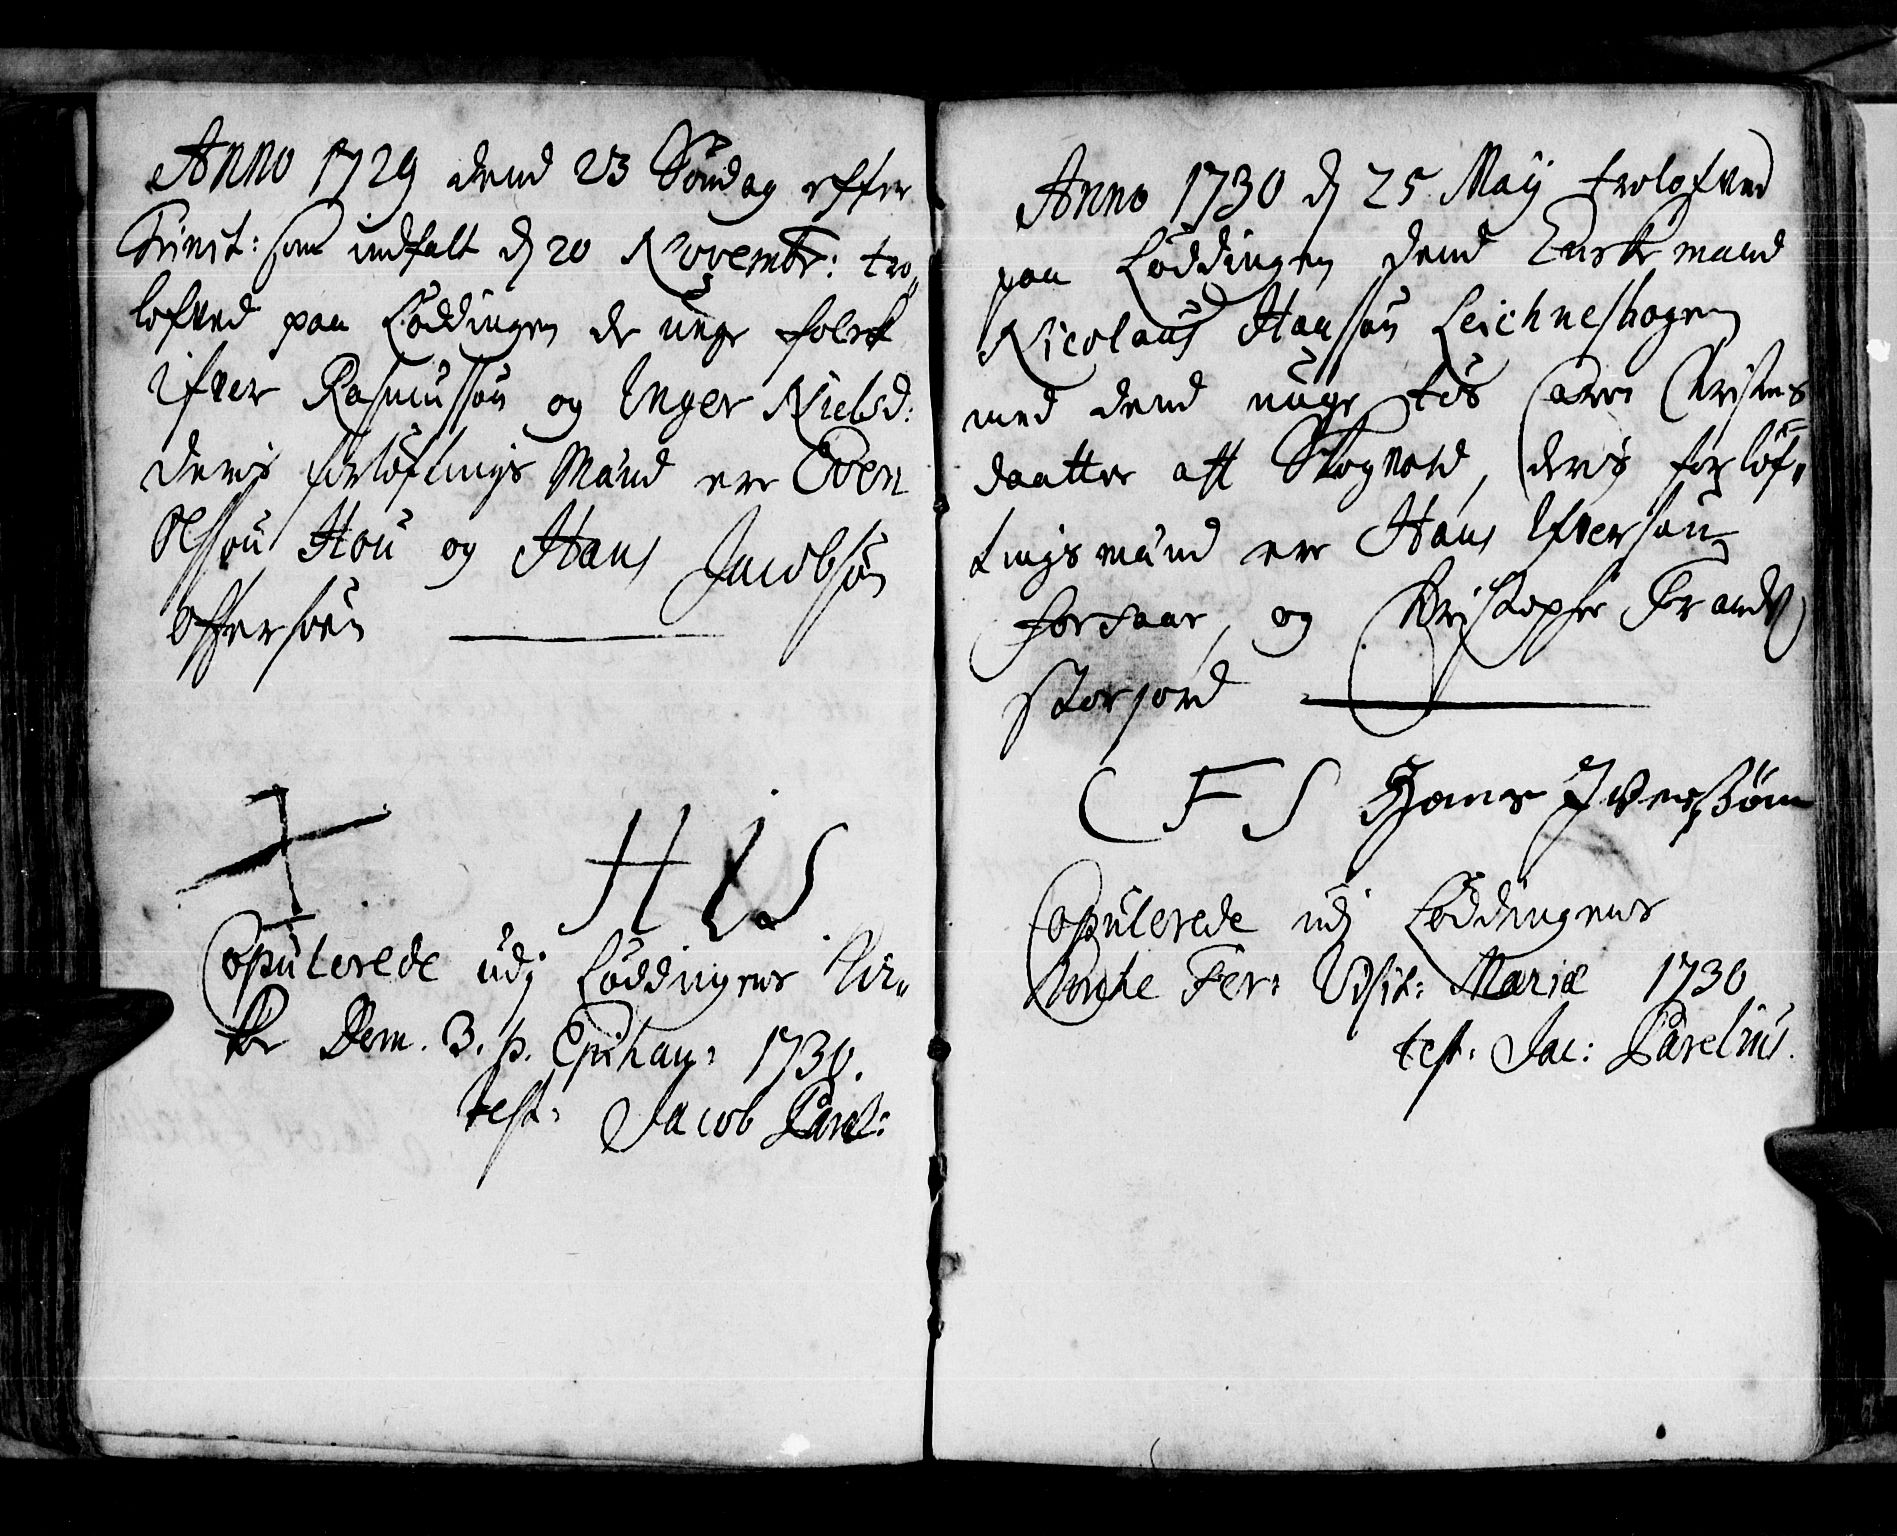 Anno 1729 dend 23 Søndag effter
Trinit: som indfalt d 20 Novembr: tro„
lofved paa Løddingen de unge folck
Ifver Rasmussøn og Inger Nielsd:
deris forløftings Mænd ere Even
Olsøn Hou og Hans Jacobsøn
Offersøen
H I S
Copulerede udj Løddingens Kir„
ke Dom. 3. p. Epiphan: 1730.
test: Jacob Parel:
Anno 1730 d 25 Maij trolofved
paa Løddingen dend Enke mand
Nicolaus Hanssøn Leichneshagen
med dend unge Tøs Caren Christens
daatter aff Skognold, deris forløf„
tingsmænd ere Hans Ifversøn
forsaae, og Christopher Frands
Storjord
C F S Hans Iverssøn
Copulerede udj Løddingens
Kirche Fer: Visit: Mariæ 1730
test: Jac: Parelius.